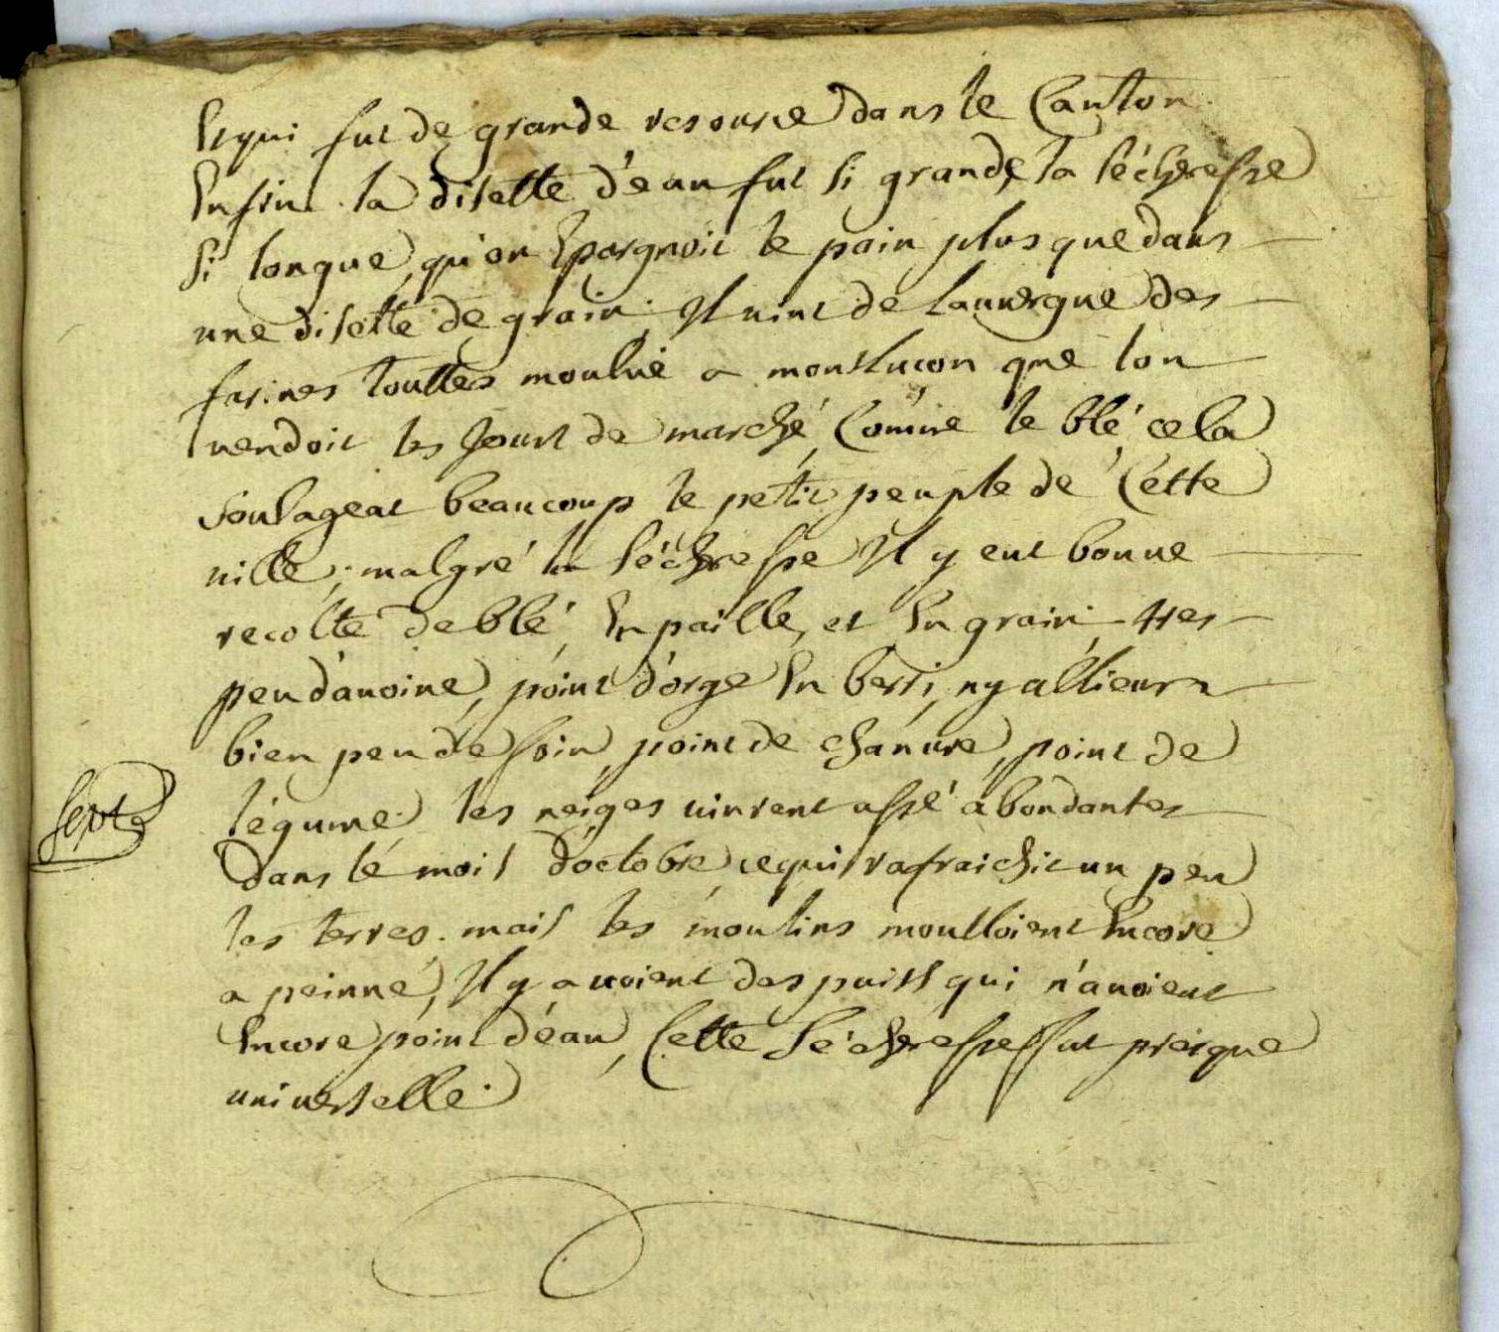 Ce qui fut de grande resource dans le Canton
Enfin la disette d'eau fut si grande, la sécheresse
si longue, qu'on Epargnoit le pain plus que dans
une disette de grain. Il vint de Lauvergne des
farines touttes moulue a montlucon que lon
vendoit les Jours de marché, Comme le blé cela
soulageat beaucoup le petit peuple de Cette
ville, malgré la sécheresse Il y eut bonne
recolte de blé En paille, et En grain tres
peu d'avoine, point d'orge En berri, ny allieurs
bien peu de foin, point de chanvre, point de
légume. les neiges vinrent assé abondantes
dans le mois d'octobre ce qui rafraichit un peu
les terres. mais les moulins moulloient Encore
a peinne, Il y avoient des puits qui n'avoient
Encore point d'eau, Cette sécheresse fut presque
universelle.